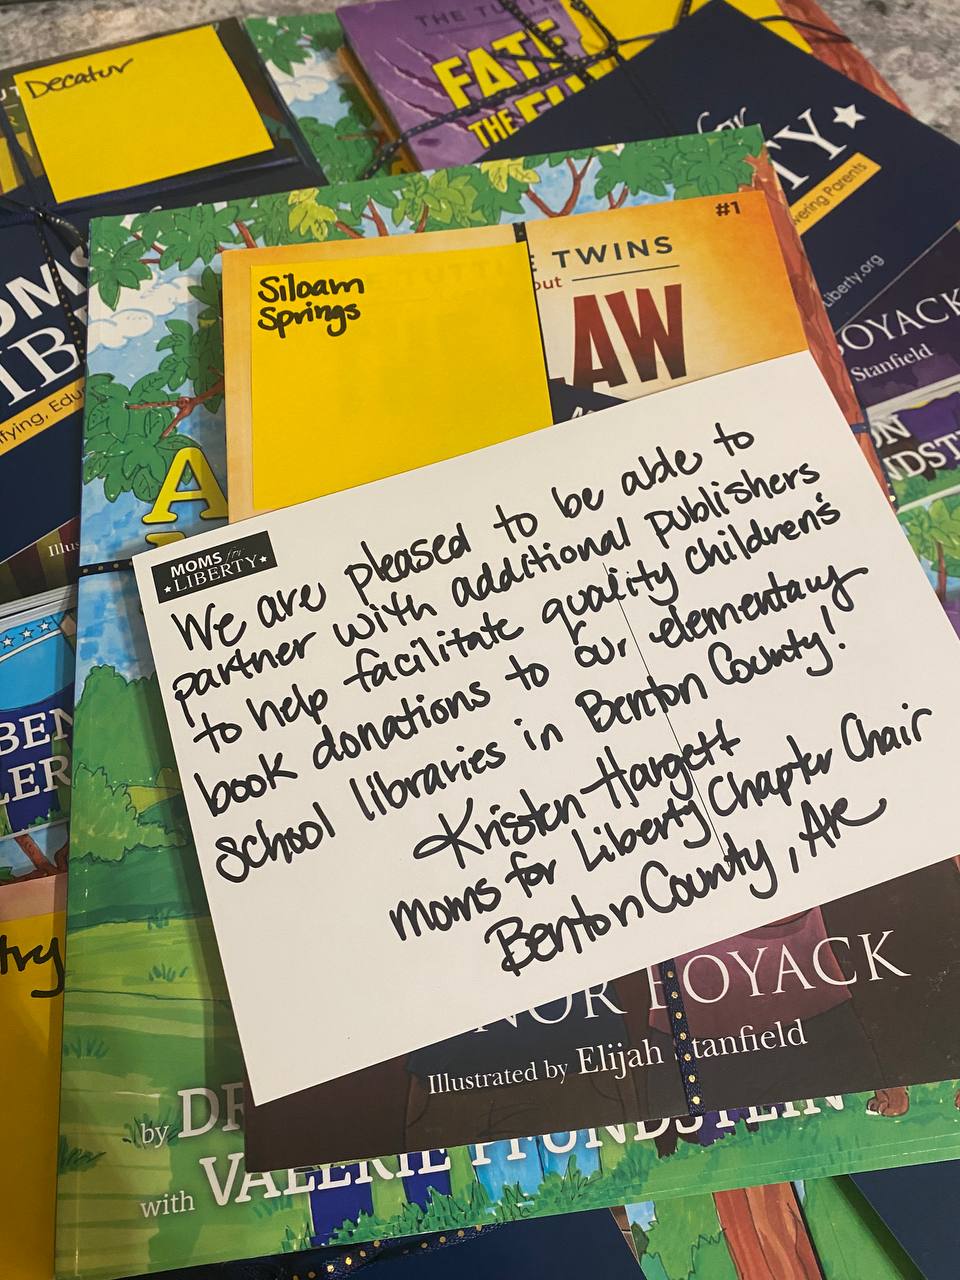 Decatur
THE TUTT
FATE
THE FU
TY
wering Parents
Liberty.org
OYACK
Stanfield
ON
NDST
OMS
IB
fying, Edu
Illus
BEN
LER
try
#1
TUTTLE TWINS
out
LAW
Siloam
Springs
A
MOMS for
LIBERTY
We are pleased to be able to
partner with additional publishers
to help facilitate quality children's
book donations to our elementary
school libraries in Benton County!
Kristen Hargett
Moms for Liberty Chapter Chair
Benton County, AR
NOR BOYACK
Illustrated by Elijah Stanfield
by DR
with VALERIE PFUNDSTEIN